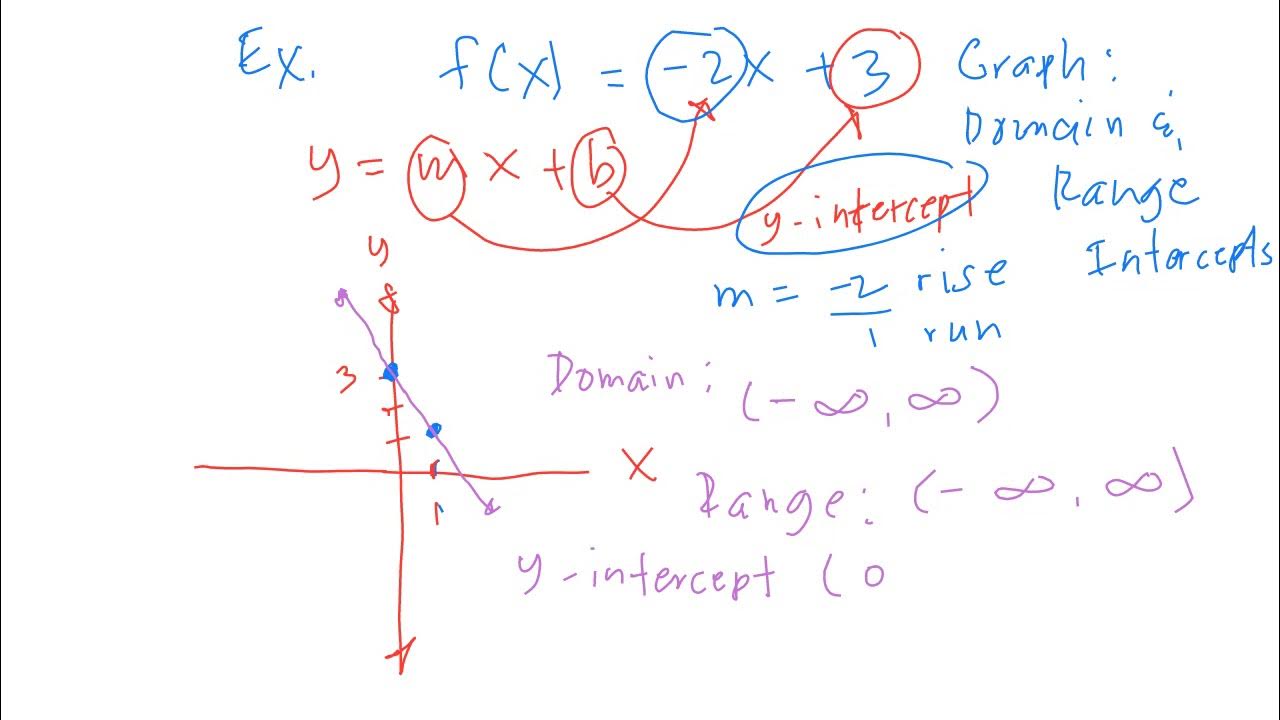 Ex. f(x) = -2x + 3 Graph:
Domain &
y = mx + b
Range
y-intercept
Intercepts
m = -2/1 rise
run
y
3
Domain: (-∞, ∞)
x
1
Range: (-∞, ∞)
y-intercept (0